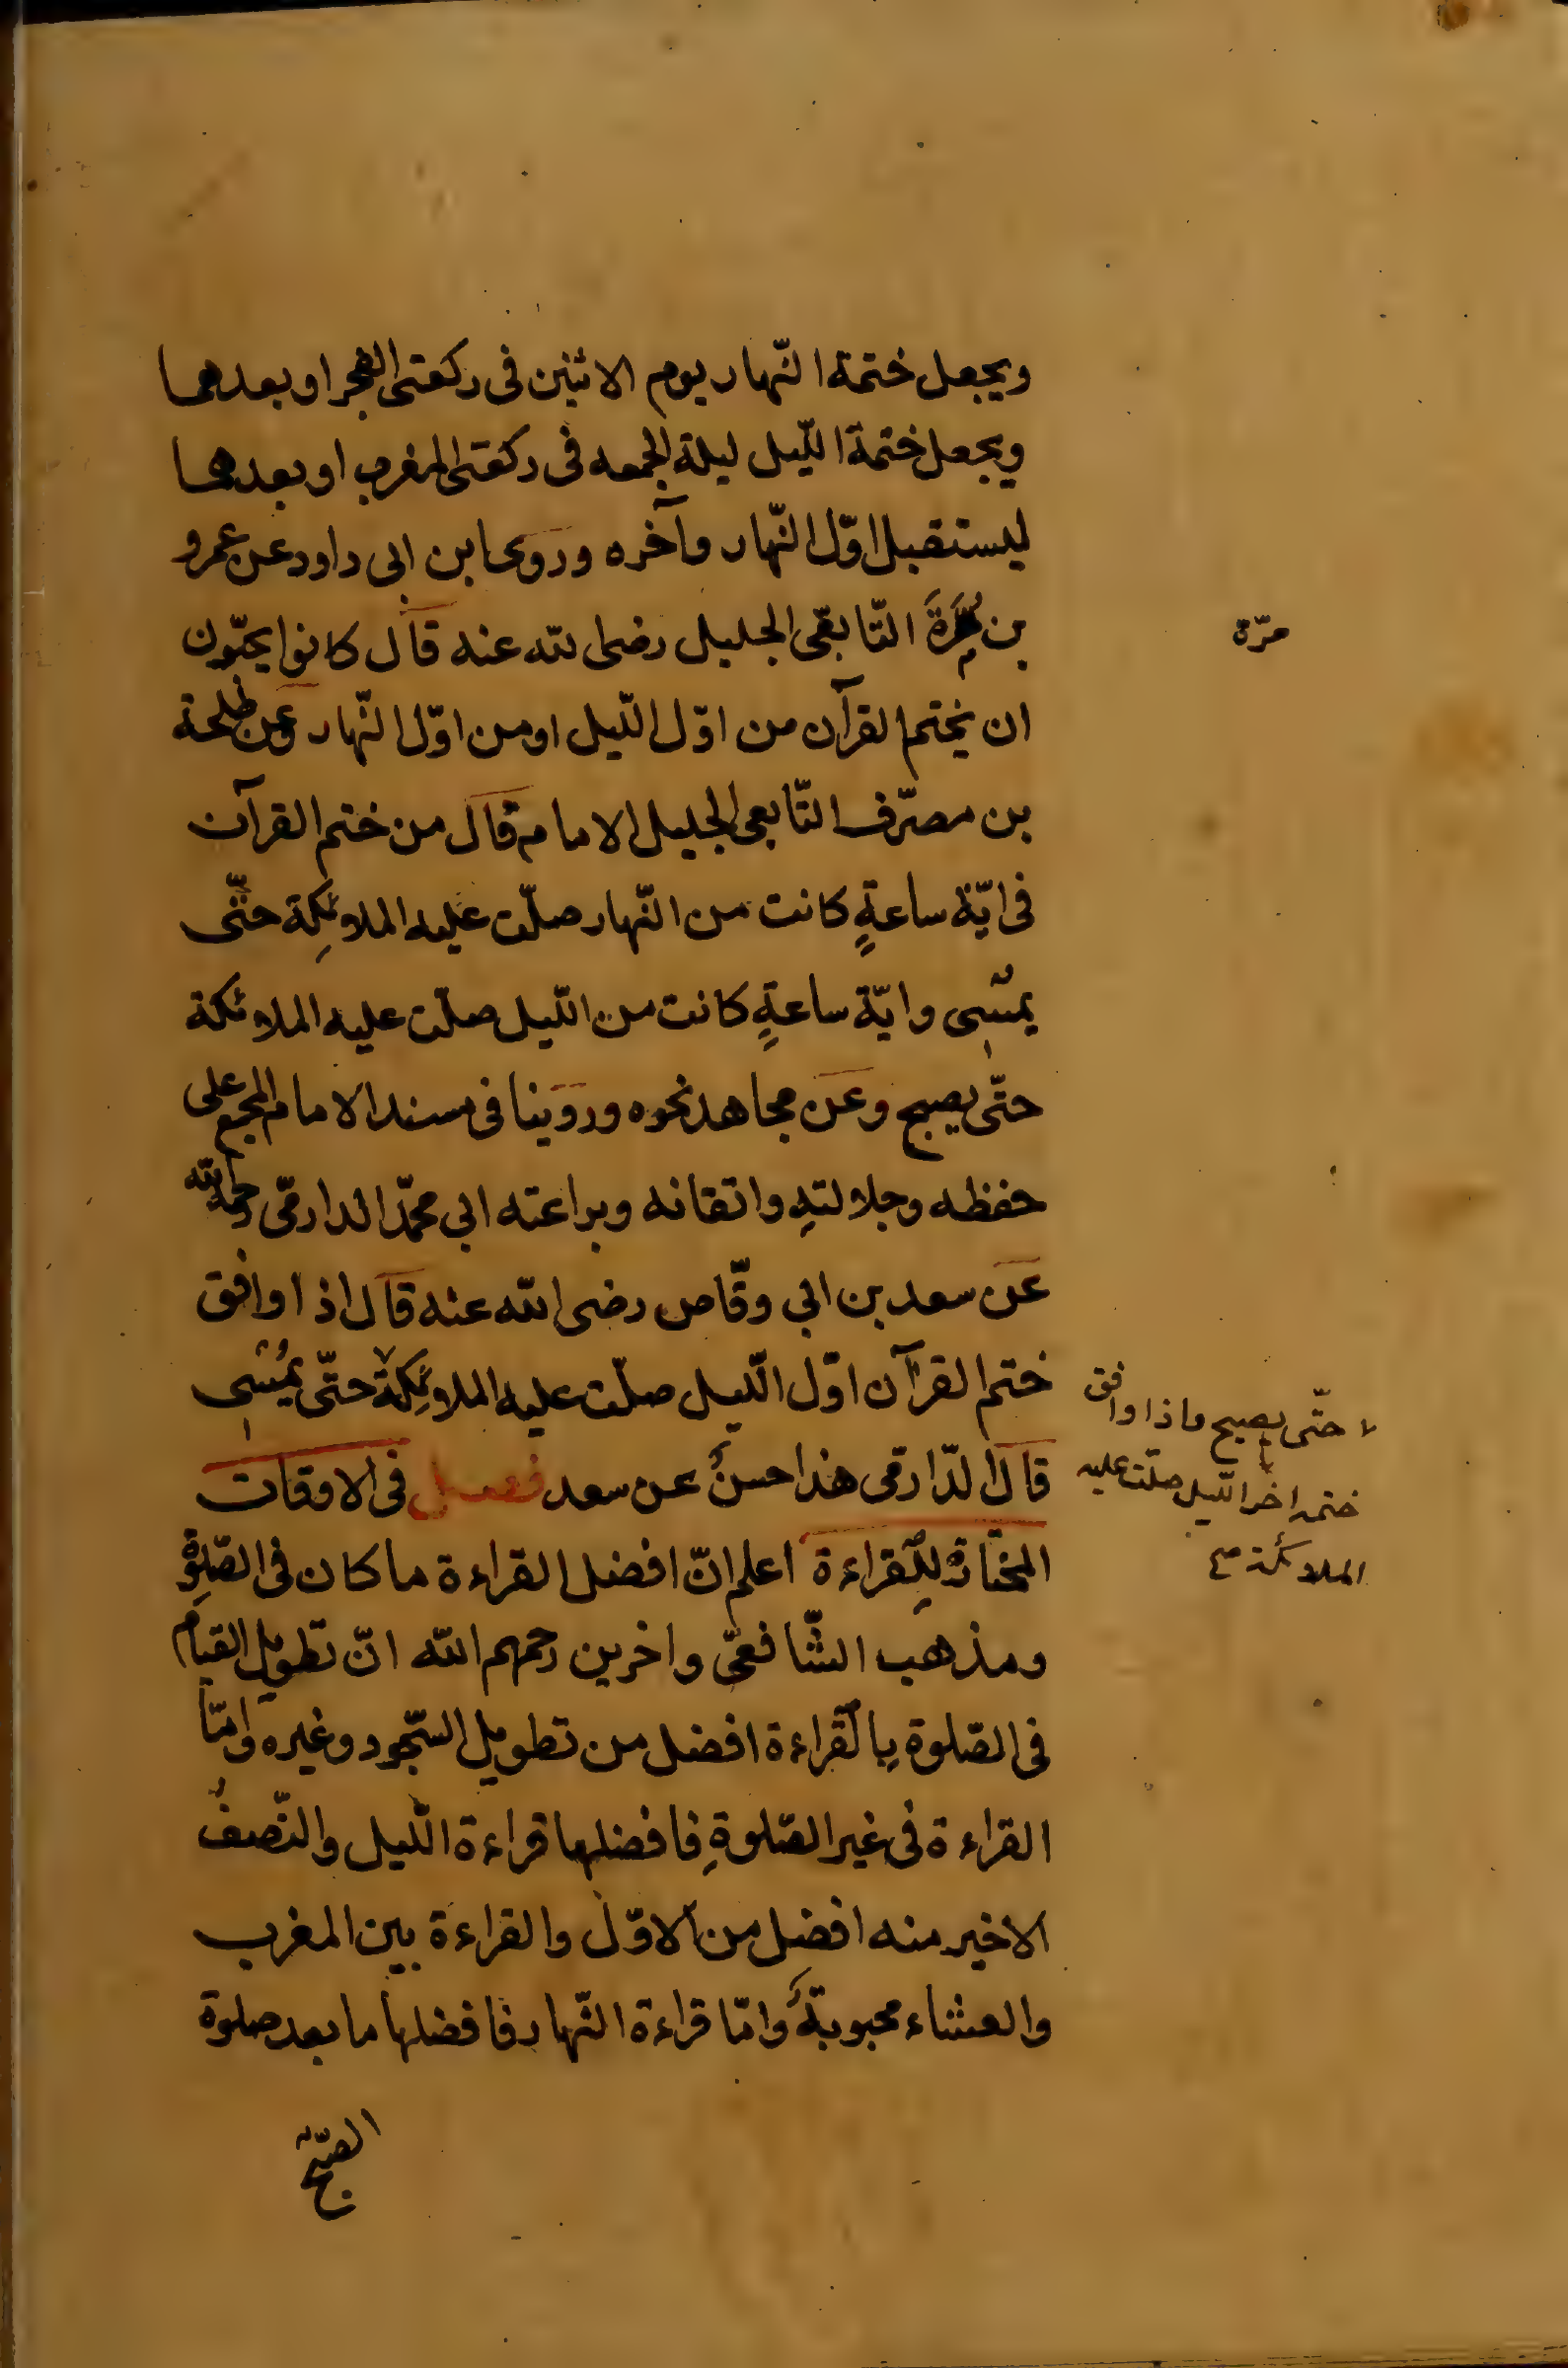 ويجعل ختمة النّهار يوم الاثنين فى ركعتى الفجر او بعدهما
ويجعل ختمة اللّيل ليلة الجمعه فى ركعتى المغرب او بعدهما
ليستقبل اوّل النّهار وآخره وروى ابن ابى داود عن عمرو
بن مُرَّةَ التّابعى الجليل رضى الله عنه قال كانوا يحبّون
مرّة
ان يختم القرآن من اوّل اللّيل او من اوّل النّهار وعن طلحة
بن مصرّف التّابعى الجليل الامام قال من ختم القرآن
فى ايّة ساعةٍ كانت من النّهار صلّت عليه الملائِكة حتّى
يمسى وايّة ساعةٍ كانت من اللّيل صلّت عليه الملائكة
حتّى يصبح وعن مجاهد نحوه وروينا فى مسند الامام المجمع على
حفظه وجلالتهِ واتقانه وبراعته ابى محمّد الدارمىّ رحمه الله
عن سعد بن ابى وقّاص رضى الله عنه قال اذا وافق
ختم القرآن اوّل اللّيل صلّت عليه الملائِكة حتّى يمُسى
حتّى يصبح واذا وافق
ختمه اخر اللّيل صلّت عليه
الملائكة صح
قال الدّارمى هذا حسنٌ عن سعد فصل فى الاوقات
المختارة للِقراءة اعلم انّ افضل القراءة ما كان فى الصّلوةِ
ومذهب الشّافعىّ واخرين رحمهم الله انّ تطويل القيام
فى الصّلوة بِالقراءة افضل من تطويل السّجود وغيره وامّا
القراءة فى غير الصّلوةِ فافضلها قراءة اللّيل والنّصفُ
الاخير منه افضل من الاوّل والقراءة بين المغرب
والعشاء محبوبةٌ وامّا قراءة النّهار فافضلها ما بعد صلوة
الصّبح